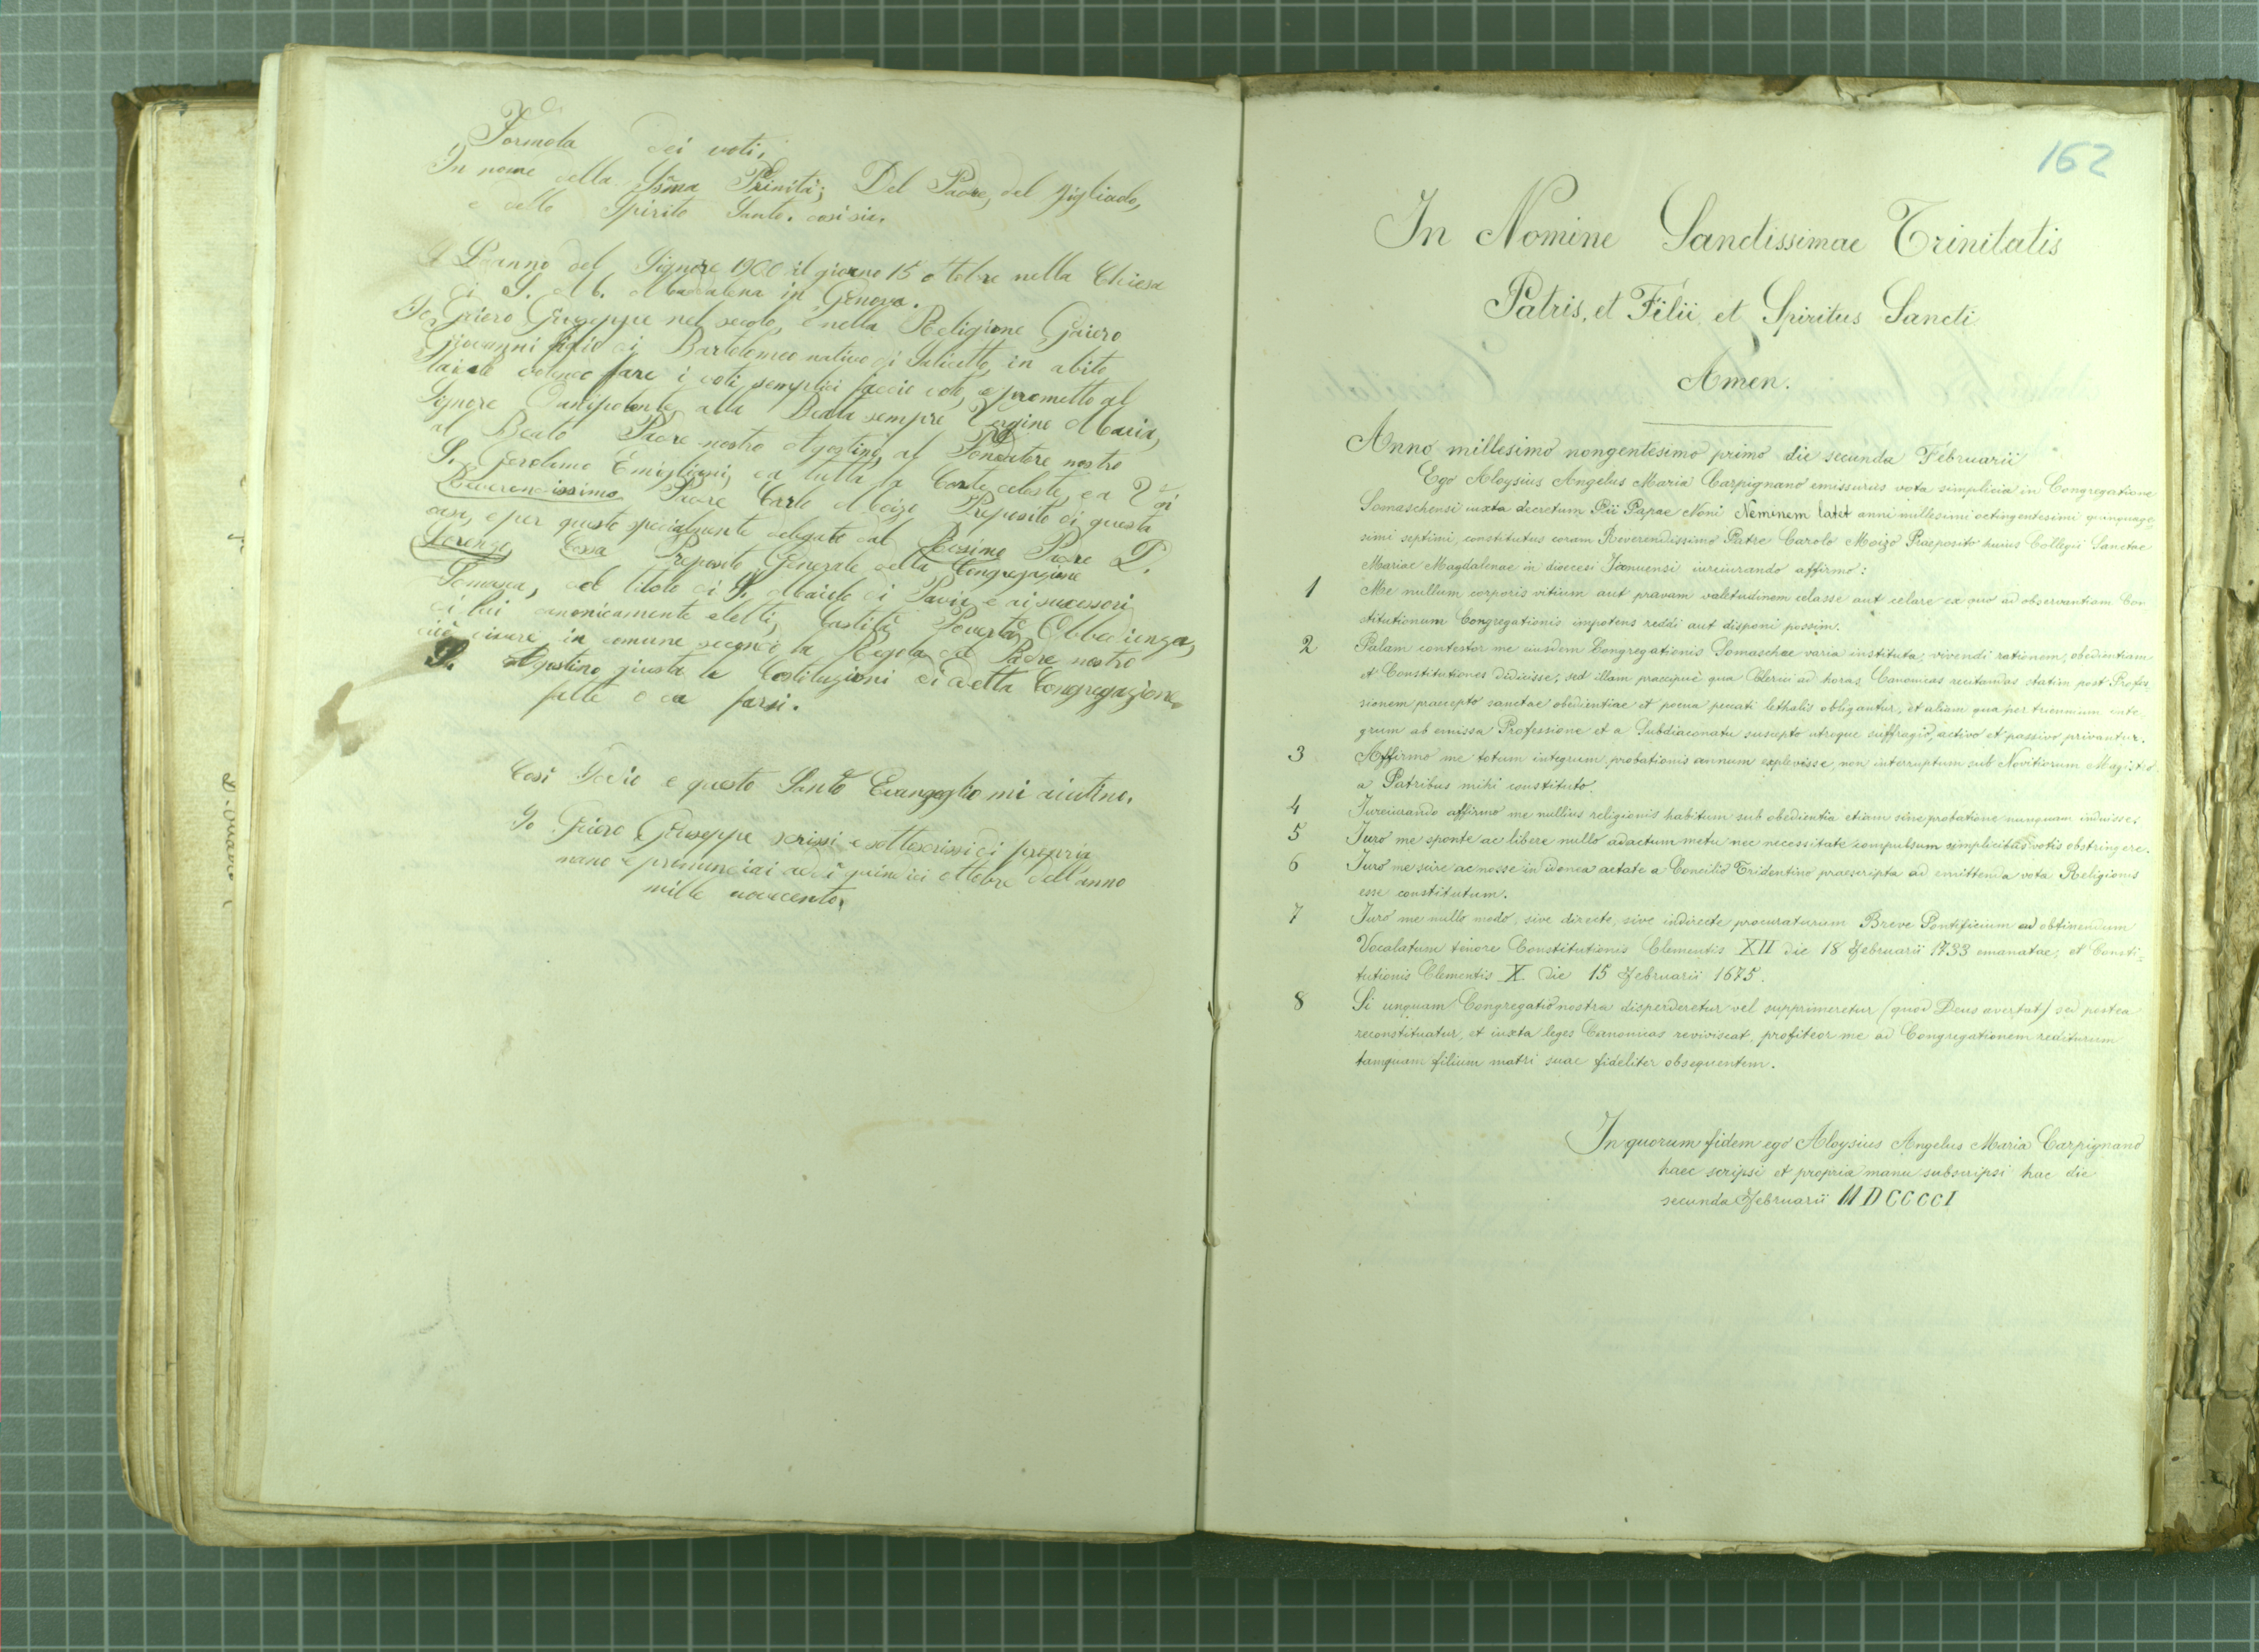 Formola dei voti.
In nome della SSma Trinità; Del Padre, del figliuolo,
e dello Spirito Santo. così sia.
L'anno del Signore 1900 il giorno 15 ottobre nella Chiesa
di S. M. Maddalena in Genova.
Io Griero Giuseppe nel secolo, e nella Religione Griero
Giovanni figlio di Bartolomeo nativo di Saliceto, in abito
laicale volendo fare i voti semplici faccio voto, e prometto al
Signore Onnipotente, alla Beata sempre Vergine Maria,
al Beato Padre nostro Agostino, al Fondatore nostro
S. Gerolamo Emigliani, ed a tutta la Corte celeste, ed a
Reverendissimo Padre Carlo Moizo Preposito di questa
casa, e per questo specialmente delegato dal Rev.simo Padre D.
Lorenzo Cossa Preposito Generale della Congregazione
Somasca, del titolo di S. Maiolo di Pavia e ai successori
di lui canonicamente eletti, Castità, Povertà, Obbedienza,
cioè vivere in comune secondo la Regola del Padre nostro
S. Agostino, giusta le Costituzioni di detta Congregazione
fatte o da farsi.
Così Iddio e questo Santo Evangeglio mi aiutino.
Io Griero Giuseppe scrissi e sottoscrissi di propria
mano e pronunciai addì quindici ottobre dell'anno
mille novecento.
162
In Nomine Sanctissimae Trinitatis
Patris, et Filii et Spiritus Sancti
Amen.
Anno millesimo nongentesimo primo die secunda Februarii
Ego Aloysius Angelus Maria Carpignano emissurus vota simplicia in Congregatione
Somaschensi iuxta decretum Pii Papae Noni Neminem latet anni millesimi octingentesimi quinquage
simi septimi, constitutus coram Reverendissimo Patre Carolo Moizo Praeposito huius Collegii Sanctae
Mariae Magdalenae in dioecesi Januensi iureiurando affirmo:
1 Me nullum corporis vitium aut pravam valetudinem celasse aut celare ex quo ad observantiam Con
stitutionum Congregationis impotens reddi aut disponi possim.
2 Palam contestor me eiusdem Congregationis Somaschae varia instituta, vivendi rationem, obedientiam
et Constitutiones didicisse, sed illam praecipue qua Clerici ad horas Canonicas recitandas statim post Profes
sionem, praecepto sanctae obedientiae et poena peccati lethalis obligantur, et aliam qua per triennium inte
grum ab emissa Professione et a Subdiaconatu suscepto utroque suffragio, activo et passivo privantur.
3 Affirmo me totum integrum, probationis annum explevisse, non interruptum sub Novitiorum Magistro
a Patribus mihi constituto.
4 Iureiurando affirmo me nullius religionis habitum sub obedientia etiam sine probatione nunquam induisse.
5 Iuro me sponte ac libere nullo adactum metu nec necessitate compulsum simplicibus votis obstringere.
6 Iuro me scire ac nosse in idonea aetate a Concilio Tridentino praescripta ad emittenda vota Religionis
esse constitutum.
7 Iuro me nullo modo, sive directe, sive indirecte procuraturum Breve Pontificium ad obtinendum
Vocalatum tenore Constitutionis Clementis XII die 18 Februarii 1733 emanatae, et Consti=
tutionis Clementis X die 15 Februarii 1675.
8 Si unquam Congregatio nostra disperderetur vel supprimeretur (quod Deus avertat) sed postea
reconstituatur, et iuxta leges Canonicas reviviscat, profiteor me ad Congregationem rediturum
tamquam filium matri suae fideliter obsequentem.
In quorum fidem ego Aloysius Angelus Maria Carpignano
haec scripsi et propria manu subscripsi hac die
secunda Februarii MDCCCCI